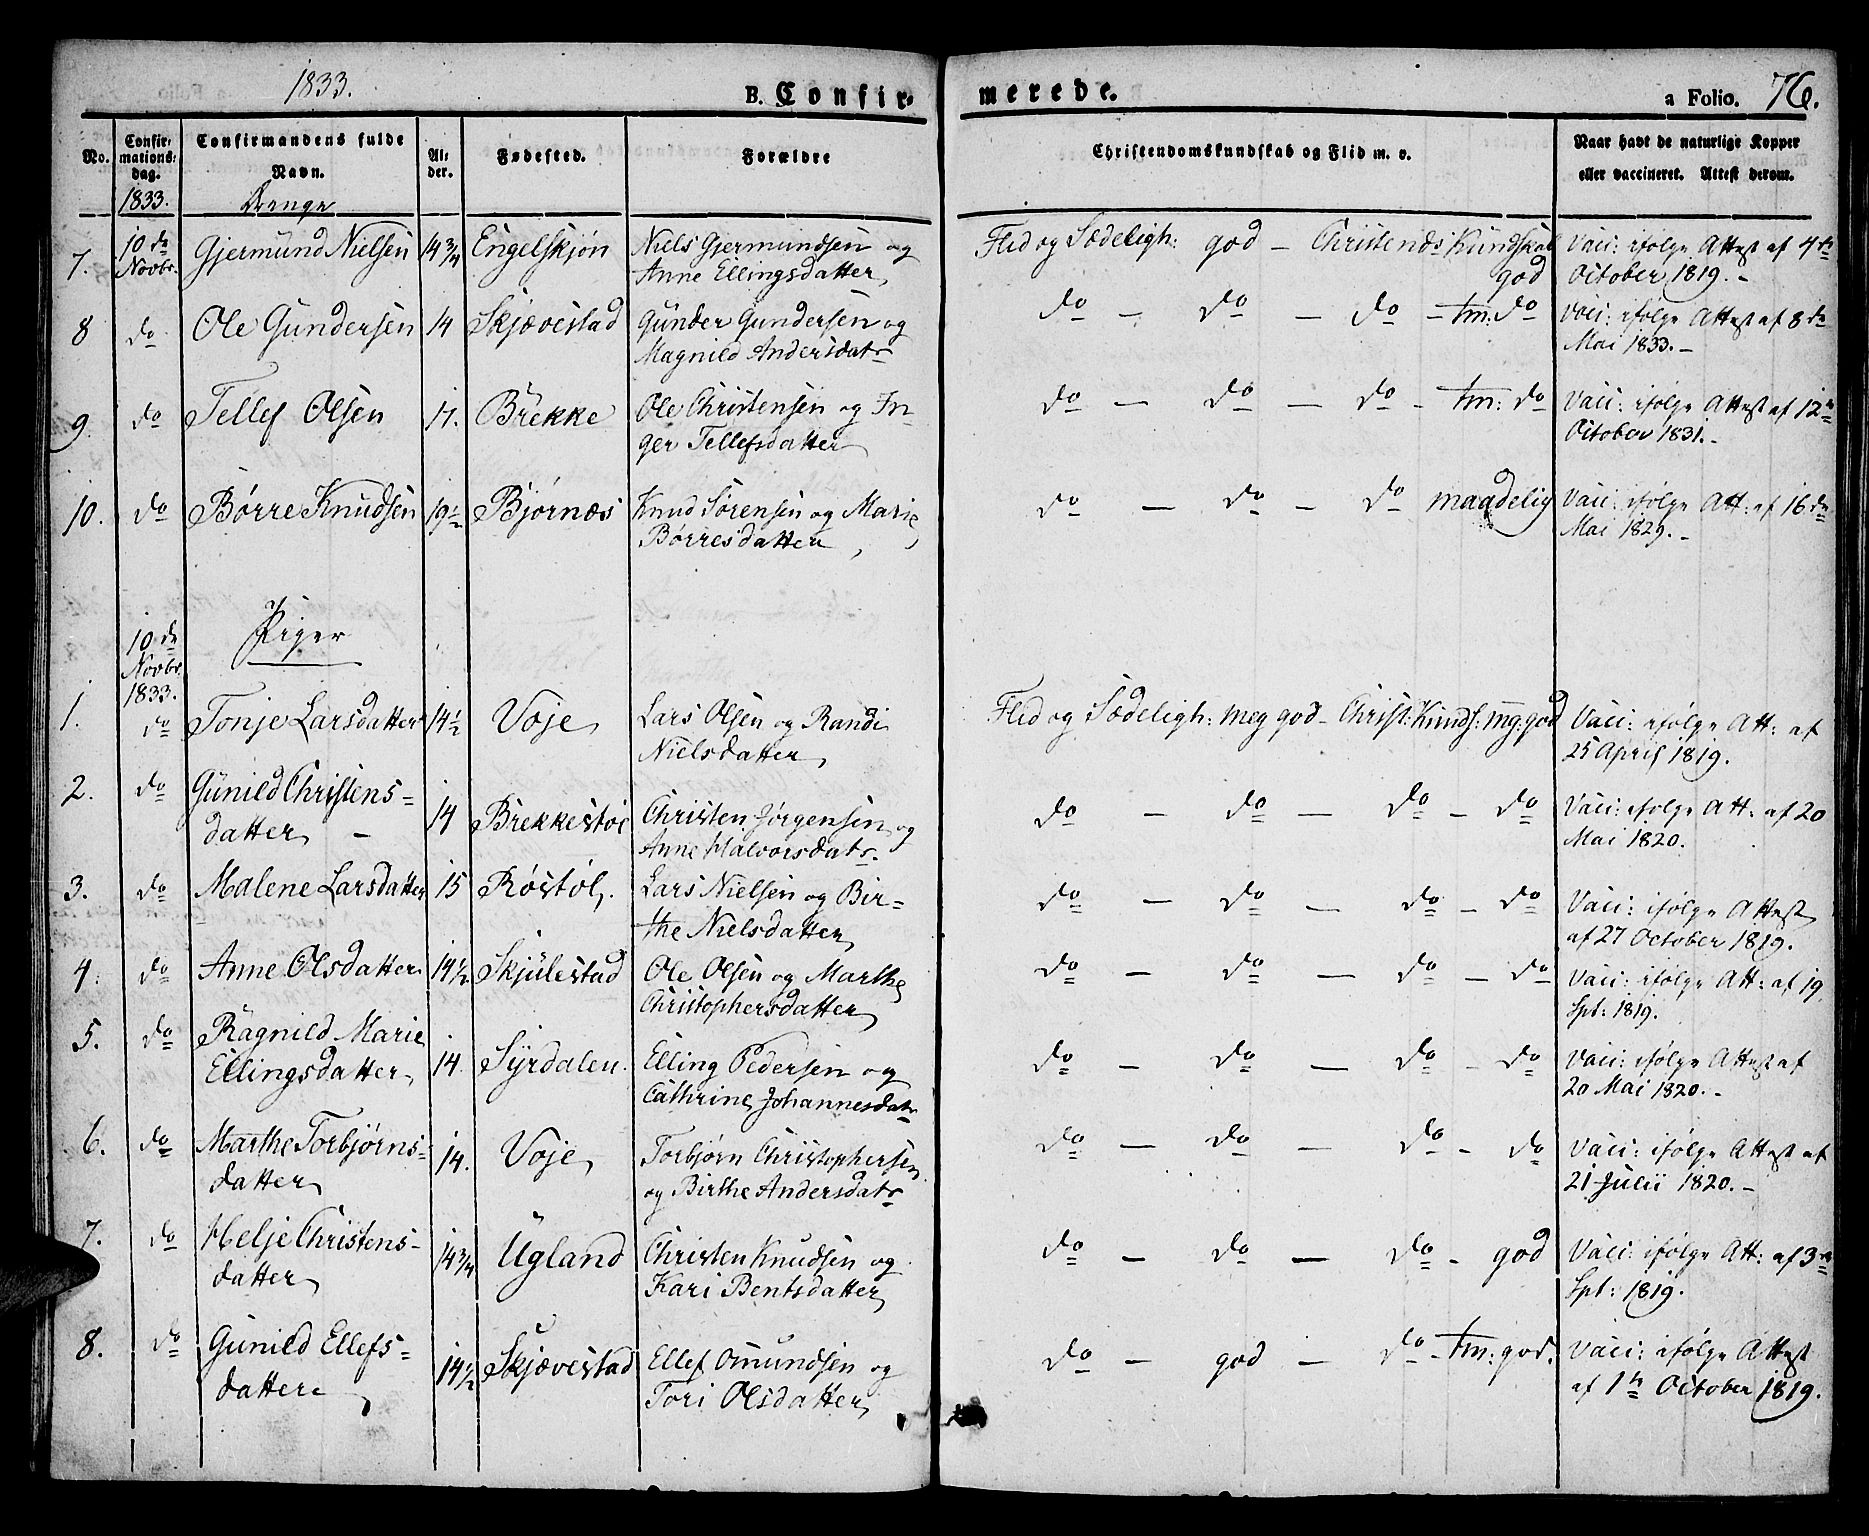 1833.
B. Confir-
merede.
a Folio. 76.
No.
Confir-
mations-
dag.
Confirmandens fulde
Navn.
Al-
der.
Fødested.
Forældre
Christendomskundskab og Flid m. v.
Naar havt de naturlige Kopper
eller vaccineret. Attest derom.
1833.
Drenge
7.
10 de
Novbr.
Gjermund Nielsen
14 3/4
Engelskjøn
Niels Gjermundsen og
Anne Ellingsdatter
Flid og Sædeligh: god – Christends Kundskab
god
Vaci: ifølge Attest af 4de
October 1819. –
8
do
Ole Gundersen
14
Skjævestad
Gunder Gundersen og
Magnild Andersdatr
do – do – do – tm: do
Vaci: ifølge Attest af 8de
Mai 1833. –
9.
do
Tellef Olsen
17.
Brekke
Ole Christensen og In-
ger Tellefsdatter
do – do – do – tm: do
Vaci: ifølge Attest af 12te
October 1831. –
10.
do
Børre Knudsen
19 1/2
Bjørnæs
Knud Sørensen og Marie
Børresdatter
do – do – do maadelig
Vaci: ifølge Att: af 16de
Mai 1829. –
10 de
Novbr.
1833.
Piger
1.
do
Tonje Larsdatter
14 1/2
Voje
Lars Olsen og Randi
Nielsdatter
Flid og Sædeligh: meg god – Christ: Kunds: mg: god
Vaci: ifølge Att: af
25 April 1819.
2.
do
Gunild Christens-
datter –
14
Brekkestøe
Christen Jørgensen og
Anne Halvorsdatr.
do – do – do – do
Vaci: ifølge Att: af 20
Mai 1820.
3.
do
Malene Larsdatter
15
Røstøl.
Lars Nielsen og Bir-
the Nielsdatter
do – do – do – do
Vaci: ifølge Attest
af 27 October 1819.
4.
do
Anne Olsdatter
14 1/2
Skjulestad
Ole Olsen og Marthe
Christophersdatter
do – do – do – do
Vaci: ifølge Att: af 19
Spt: 1819.
5.
do
Ragnild Marie
Ellingsdatter
14.
Syrdalen.
Elling Pedersen og
Cathrine Johannesdatr
do – do – do – do
Vaci: ifølge Attest af
20 Mai 1820. –
6.
do
Marthe Torbjørns-
datter
14.
Voje
Torbjørn Christophersen
og Birthe Andersdatr
do – do – do – do
Vaci: ifølge Attest af
21 Julii 1820. –
7.
do
Helje Christens-
datter
14 3/4
Ugland
Christen Knudsen og
Kari Bentsdatter
do – do – do – god
Vaci: ifølge Att: af 3die
Spt: 1819.
8.
do
Gunild Ellefs-
datter
14 1/2
Skjævestad
Ellef Omundsen og
Tori Olsdatter
do – god – do – tm: god.
Vaci: ifølge Attest
af 1te October 1819.